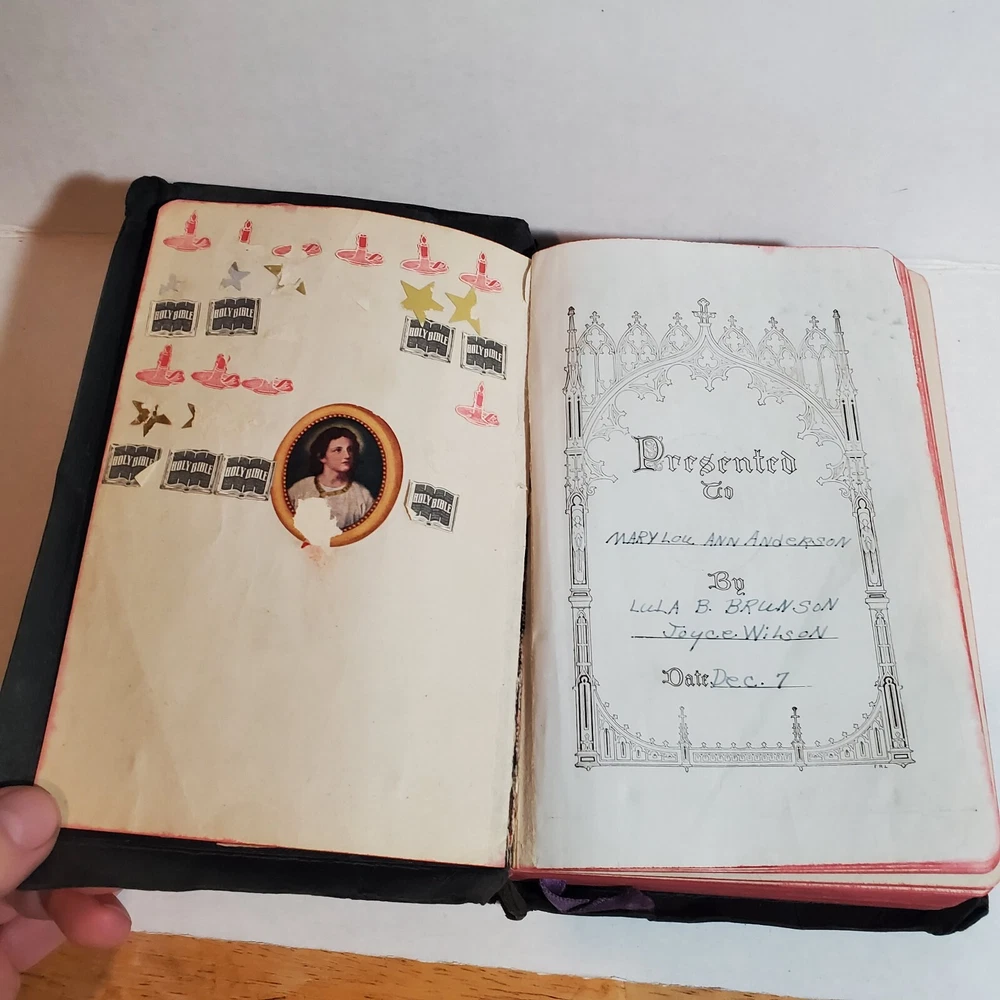 HOLY BIBLE
HOLY BIBLE
HOLY BIBLE
HOLY BIBLE
HOLY BIBLE
HOLY BIBLE
HOLY BIBLE
HOLY BIBLE
Presented
To
MARY LOU ANN ANDERSON
By
LULA B. BRUNSON
Joyce Wilson
Date Dec. 7